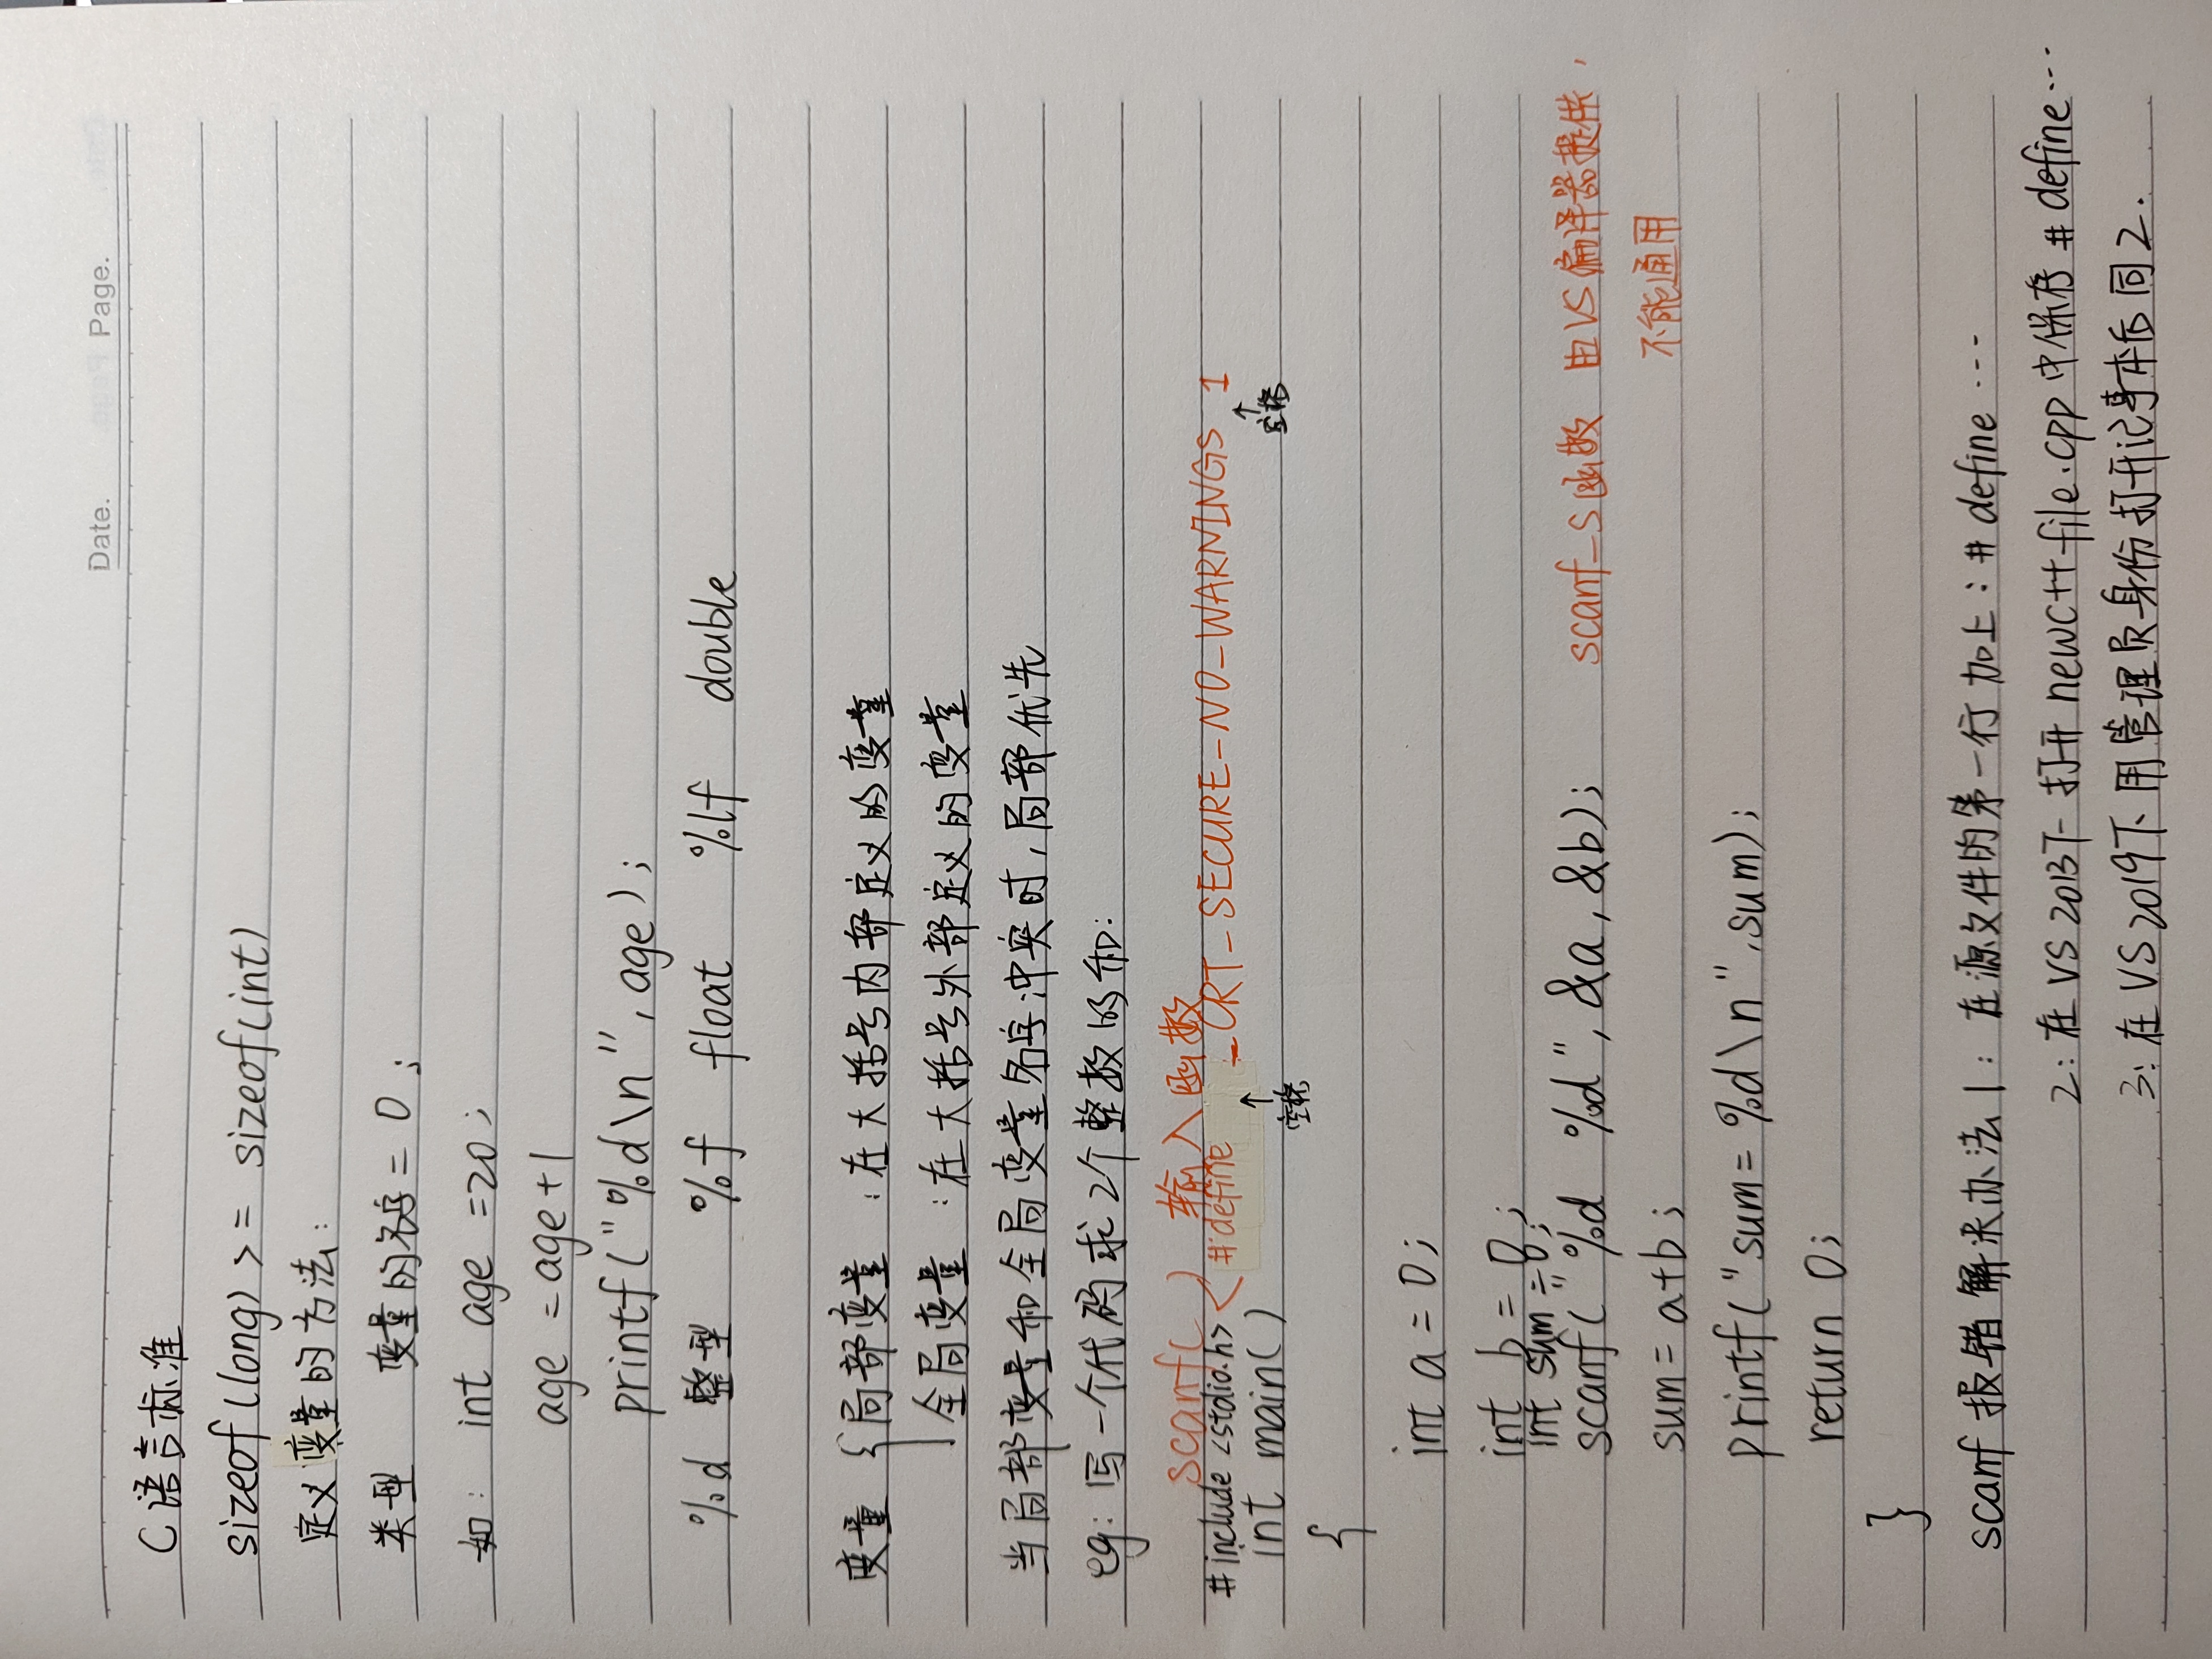 Date. Page.
C语言标准
sizeof(long) >= sizeof(int)
定义变量的方法:
类型 变量的名字 = 0;
如: int age =20;
age =age+1
printf("%d\n",age);
%d 整型 %f float %lf double
变量 { 局部变量 : 在大括号内部定义的变量
全局变量 : 在大括号外部定义的变量
当局部变量和全局变量名字冲突时,局部优先
eg: 写一个代码求2个整数的和:
scanf( ) 输入函数
#include <stdio.h> < #define _CRT-SECURE-NO-WARNINGS 1
↑空格 ↑空格
int main( )
{
int a = 0;
int b = 0;
int sum = 0;
scanf("%d %d",&a,&b); scanf_s函数 由VS编译器提供,
sum = a+b; 不能通用
printf("sum = %d\n",sum);
return 0;
}
scanf 报错解决办法 1: 在源文件的第一行加上: #define ...
2: 在VS2013下打开 newc++file.cpp 中保存 #define...
3: 在VS2019下用管理员身份打开记事本后同2.